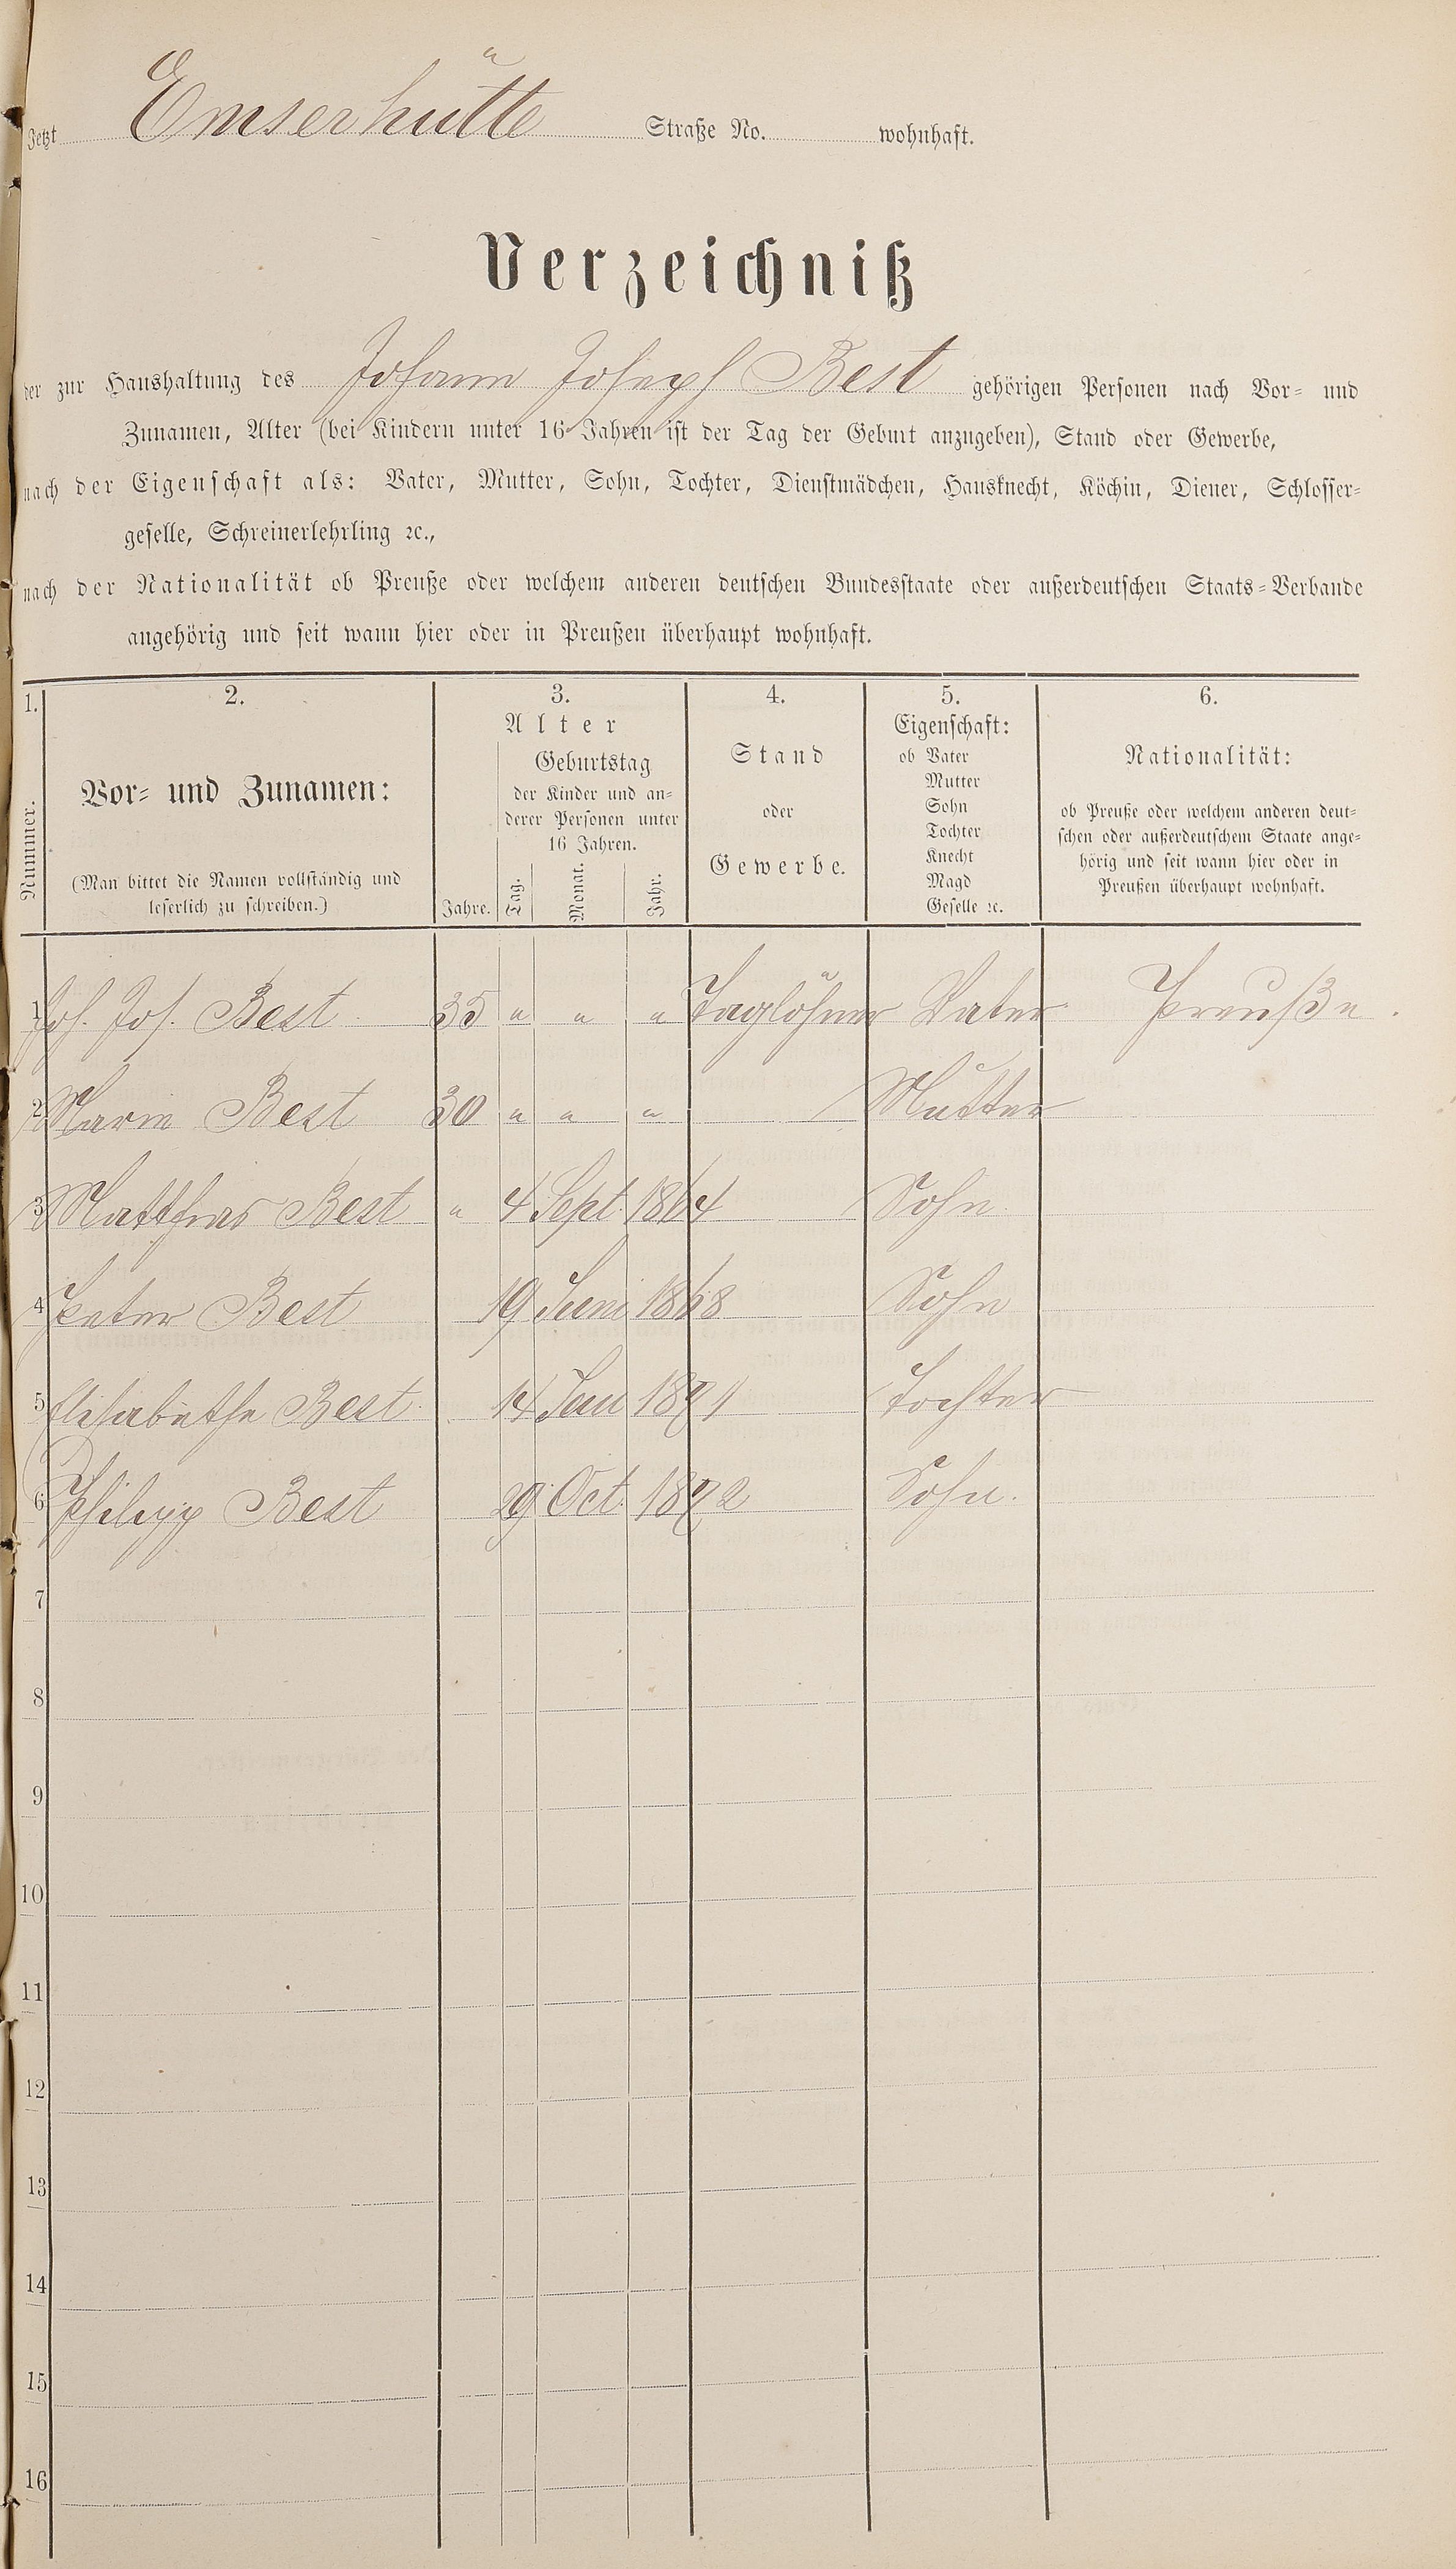 Jetzt Emserhütte Straße No. wohnhaft.
Verzeichniß
der zur Haushaltung des Johann Joseph Best gehörigen Personen nach Vor- und
Zunamen, Alter (bei Kindern unter 16 Jahren ist der Tag der Geburt anzugeben), Stand oder Gewerbe,
nach der Eigenschaft als: Vater, Mutter, Sohn, Tochter, Dienstmädchen, Hausknecht, Köchin, Diener, Schlosser-
geselle, Schreinerlehrling ꝛc.,
nach der Nationalität ob Preuße oder welchem anderen deutschen Bundesstaate oder außerdeutschen Staats-Verbande
angehörig und seit wann hier oder in Preußen überhaupt wohnhaft.
1. 2. 3. 4. 5. 6.
Nummer.
Vor- und Zunamen:
(Man bittet die Namen vollständig und
leserlich zu schreiben.)
Alter
Jahre.
Geburtstag
der Kinder und an-
derer Personen unter
16 Jahren.
Tag. Monat. Jahr.
Stand
oder
Gewerbe.
Eigenschaft:
ob Vater
Mutter
Sohn
Tochter
Knecht
Magd
Geselle ꝛc.
Nationalität:
ob Preuße oder welchem anderen deut-
schen oder außerdeutschem Staate ange-
hörig und seit wann hier oder in
Preußen überhaupt wohnhaft.
1 Joh. Jos. Best 35 " " " Taglöhner Vater Preuße.
2 Marie Best 30 " " " Mutter
3 Matthias Best " 4 Sept. 1864 Sohn
4 Peter Best 19 Juni 1868 Sohn
5 Elisabethe Best 14 1871 Tochter
6 Philipp Best 29 Oct. 1872 Sohn.
7
8
9
10
11
12
13
14
15
16